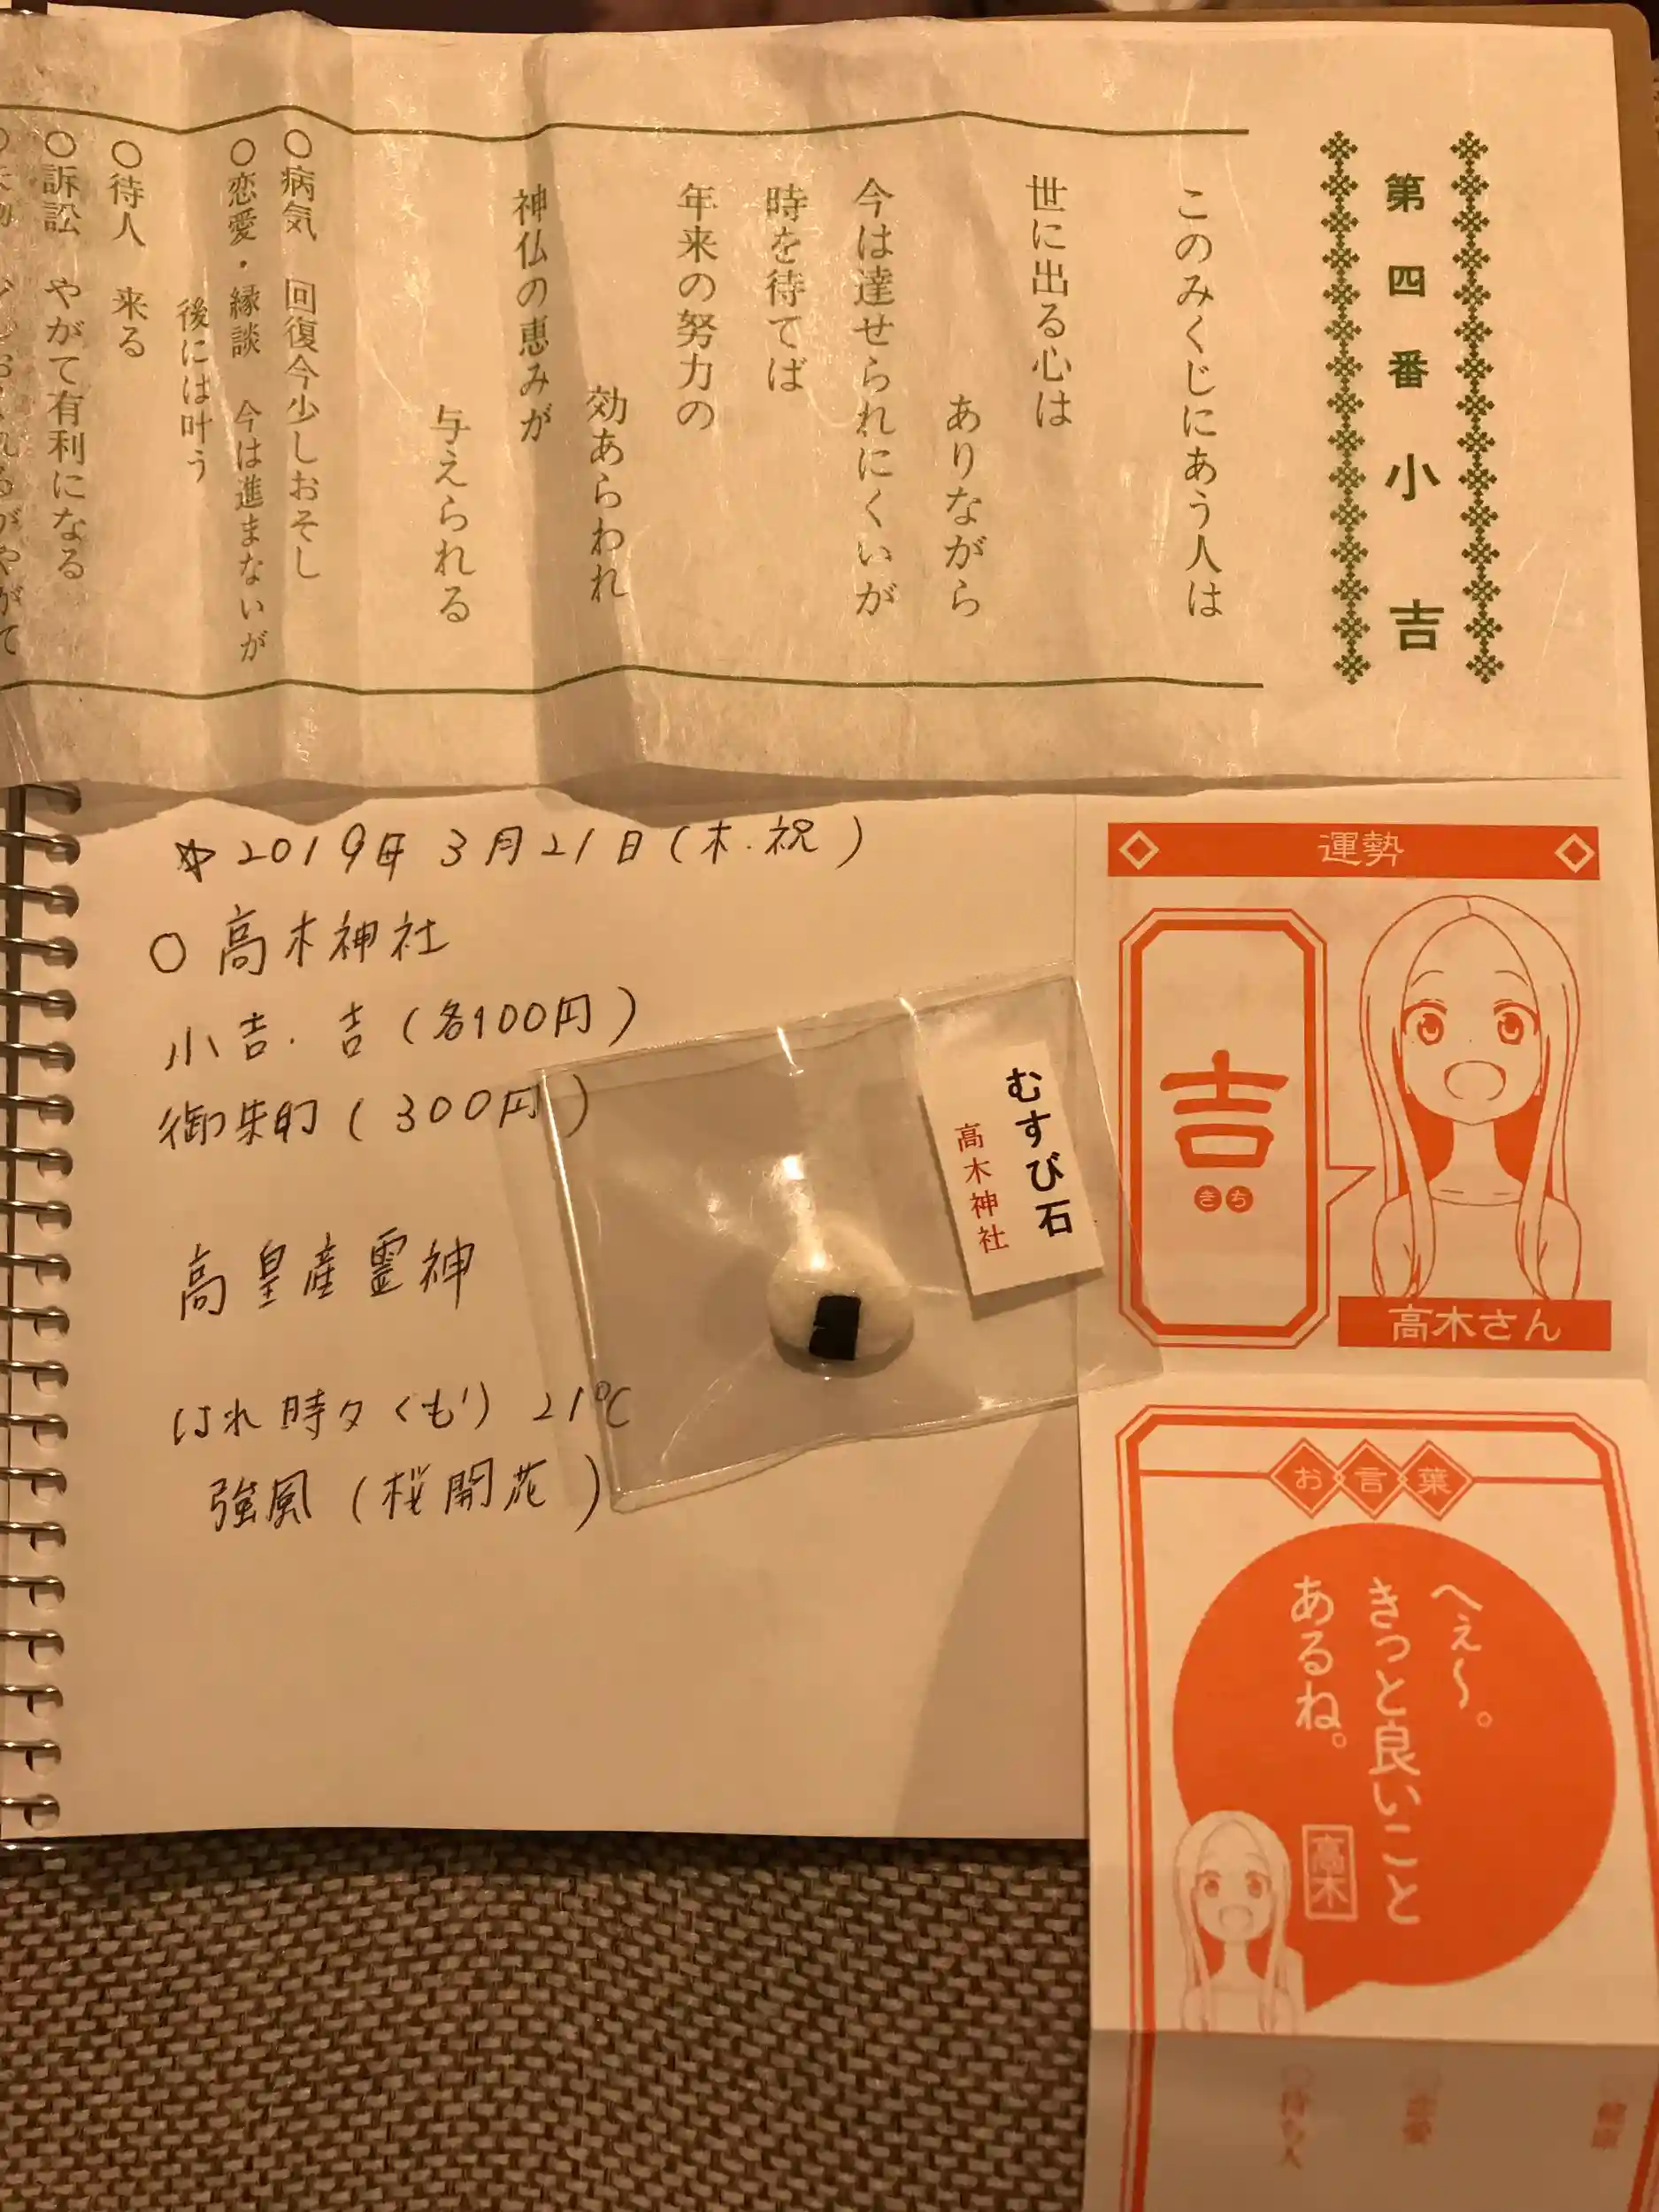 第四番 小吉
このみくじにあう人は
世に出る心は
ありながら
今は達せられにくいが
時を待てば
年来の努力の
効あらわれ
神仏の恵みが
与えられる
○病気 回復今少しおそし
○恋愛・縁談 今は進まないが
後には叶う
○待人 来る
○訴訟 やがて有利になる
☆2019年3月21日(木.祝)
○高木神社
小吉.吉(各100円)
御朱印(300円)
高皇産霊神
はれ時々くもり 21℃
強風(桜開花)
むすび石
高木神社
運勢
吉
きち
高木さん
お言葉
へぇ〜。
きっと良いこと
あるね。
高木